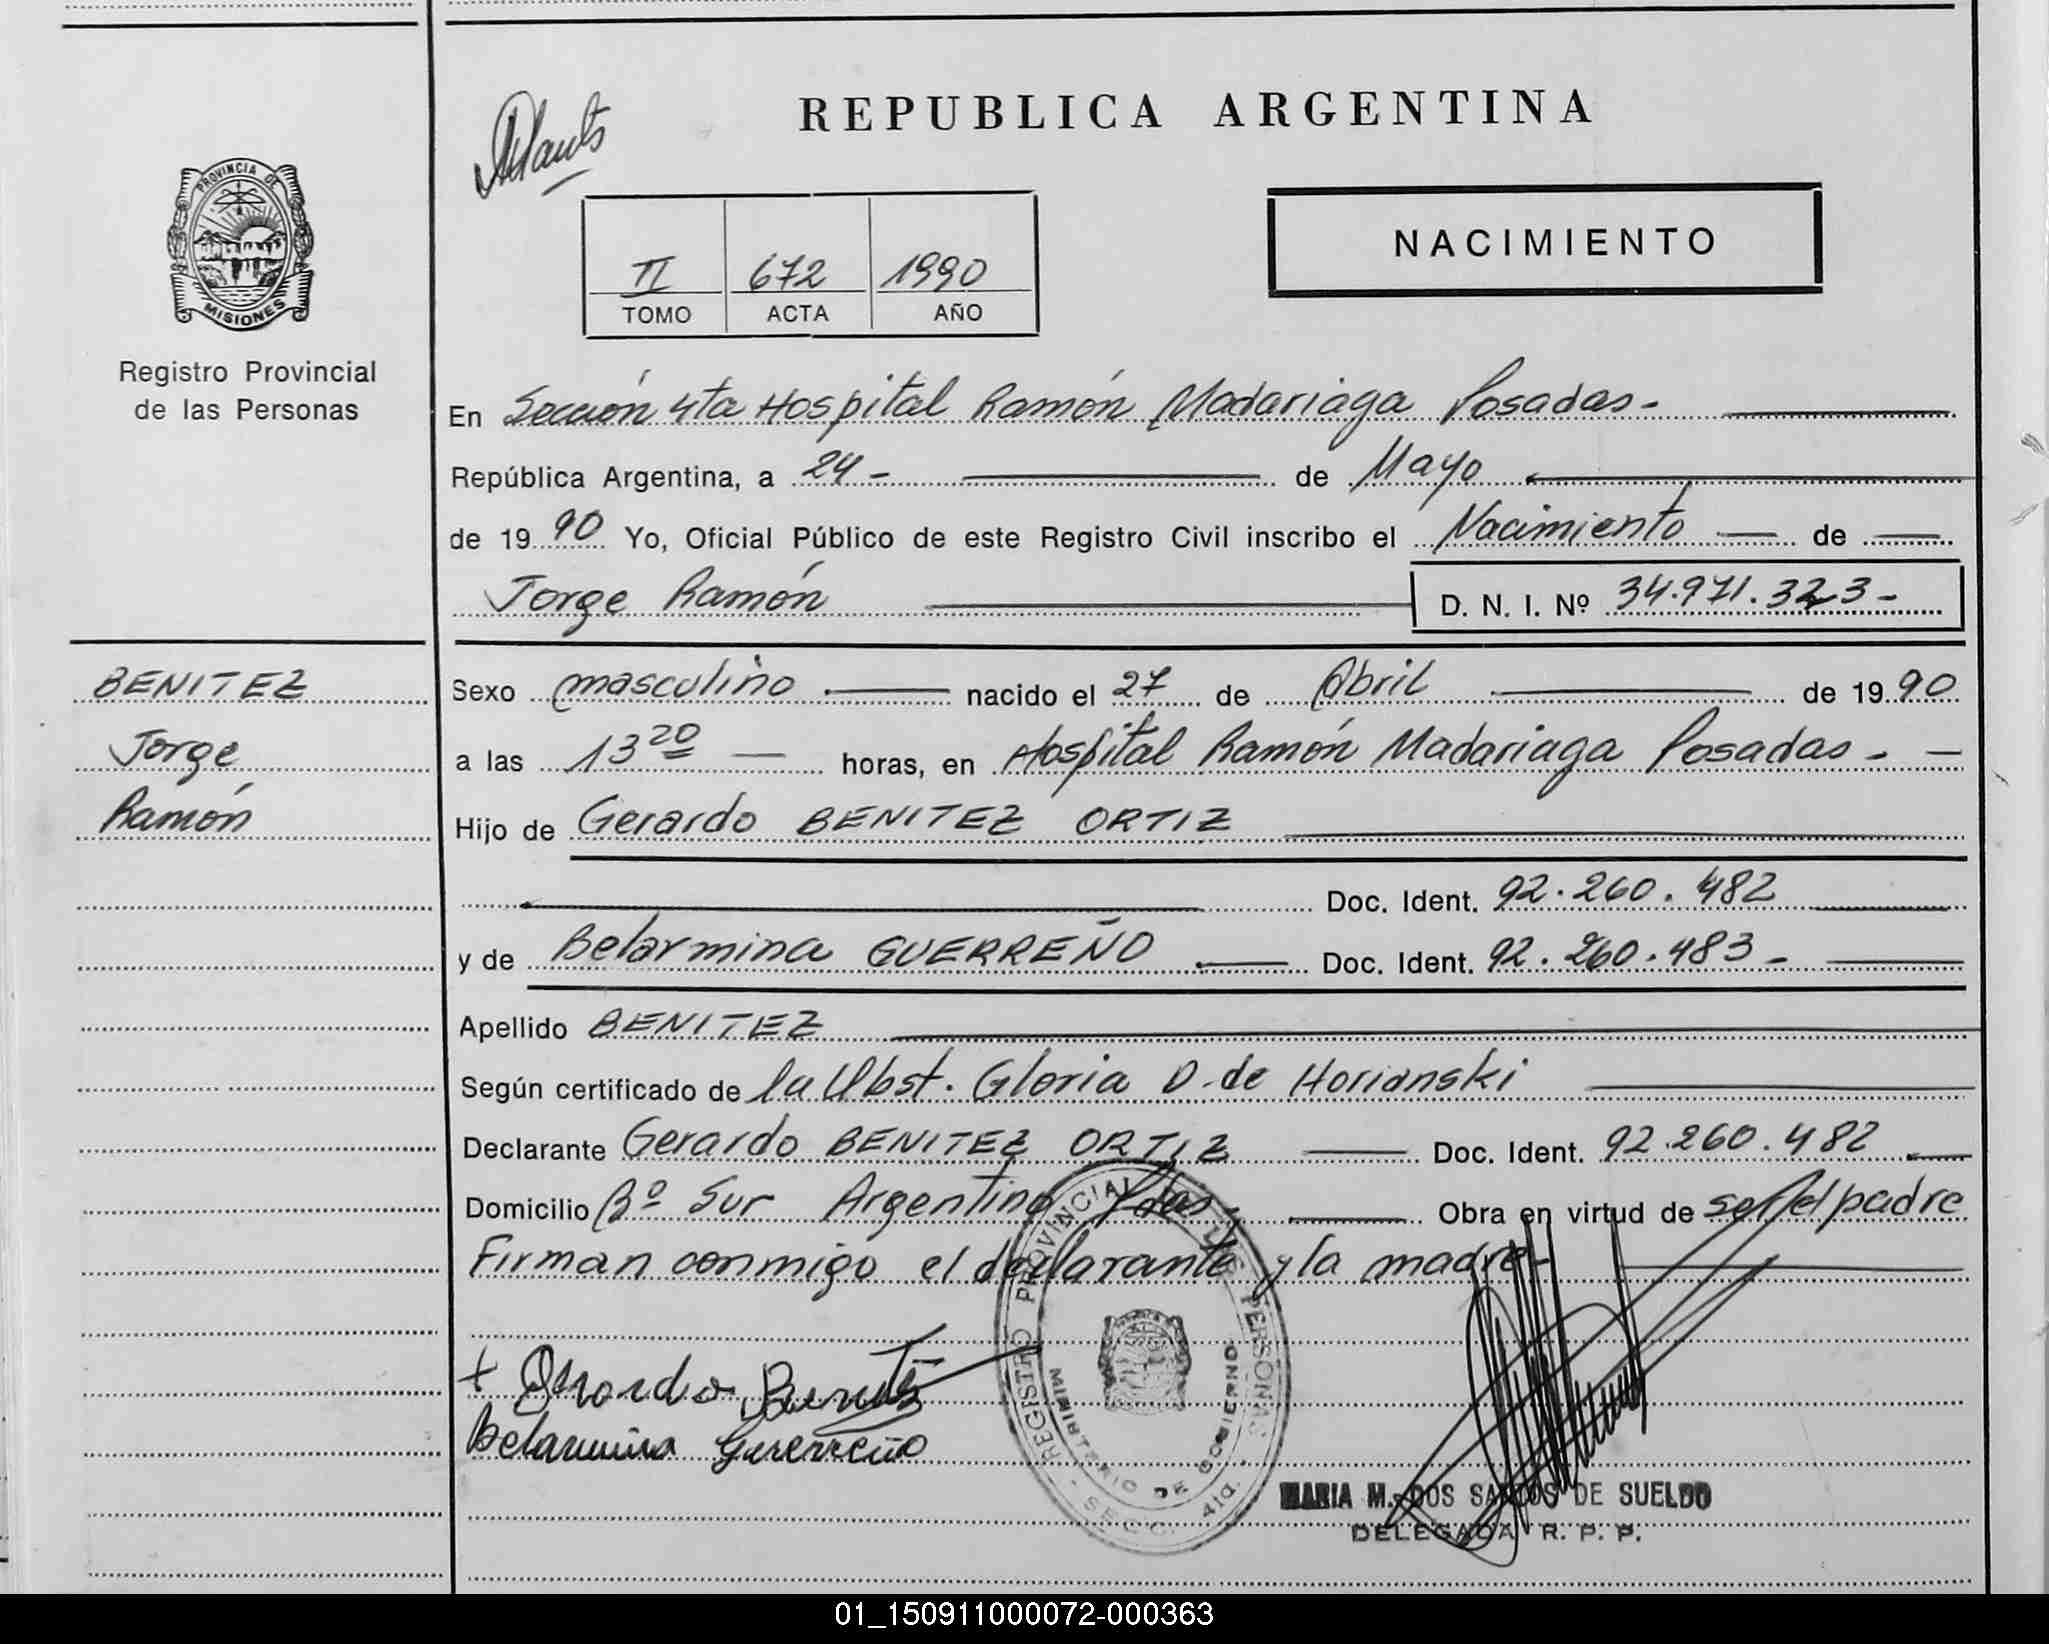 REPUBLICA ARGENTINA
PROVINCIA DE
MISIONES
Registro Provincial
de las Personas
II 672 1990
TOMO ACTA AÑO
NACIMIENTO
En Sección 4ta Hospital Ramón Madariaga Posadas-
República Argentina, a 24- de Mayo
de 19 90 Yo, Oficial Público de este Registro Civil inscribo el Nacimiento de
Jorge Ramón D. N. I. Nº 34.971.323-
BENITEZ
Jorge
Ramón
Sexo masculino nacido el 27 de Abril de 19 90
a las 13 20 horas, en Hospital Ramón Madariaga Posadas-
Hijo de Gerardo BENITEZ ORTIZ
Doc. Ident. 92.260.482
y de Belarmina GUERREÑO Doc. Ident. 92.260.483-
Apellido BENITEZ
Según certificado de la Obst. Gloria D. de Horianski
Declarante Gerardo BENITEZ ORTIZ Doc. Ident. 92.260.482
Domicilio Bº Sur Argentino Pdas. Obra en virtud de ser el padre
Firman conmigo el declarante y la madre-
Belarmina Guerreño
REGISTRO PROVINCIAL DE LAS PERSONAS
MINISTERIO DE GOBIERNO
- SECC. 4ta. -
MARIA M. DOS SANTOS DE SUELDO
DELEGADA R. P. P.
01_150911000072-000363